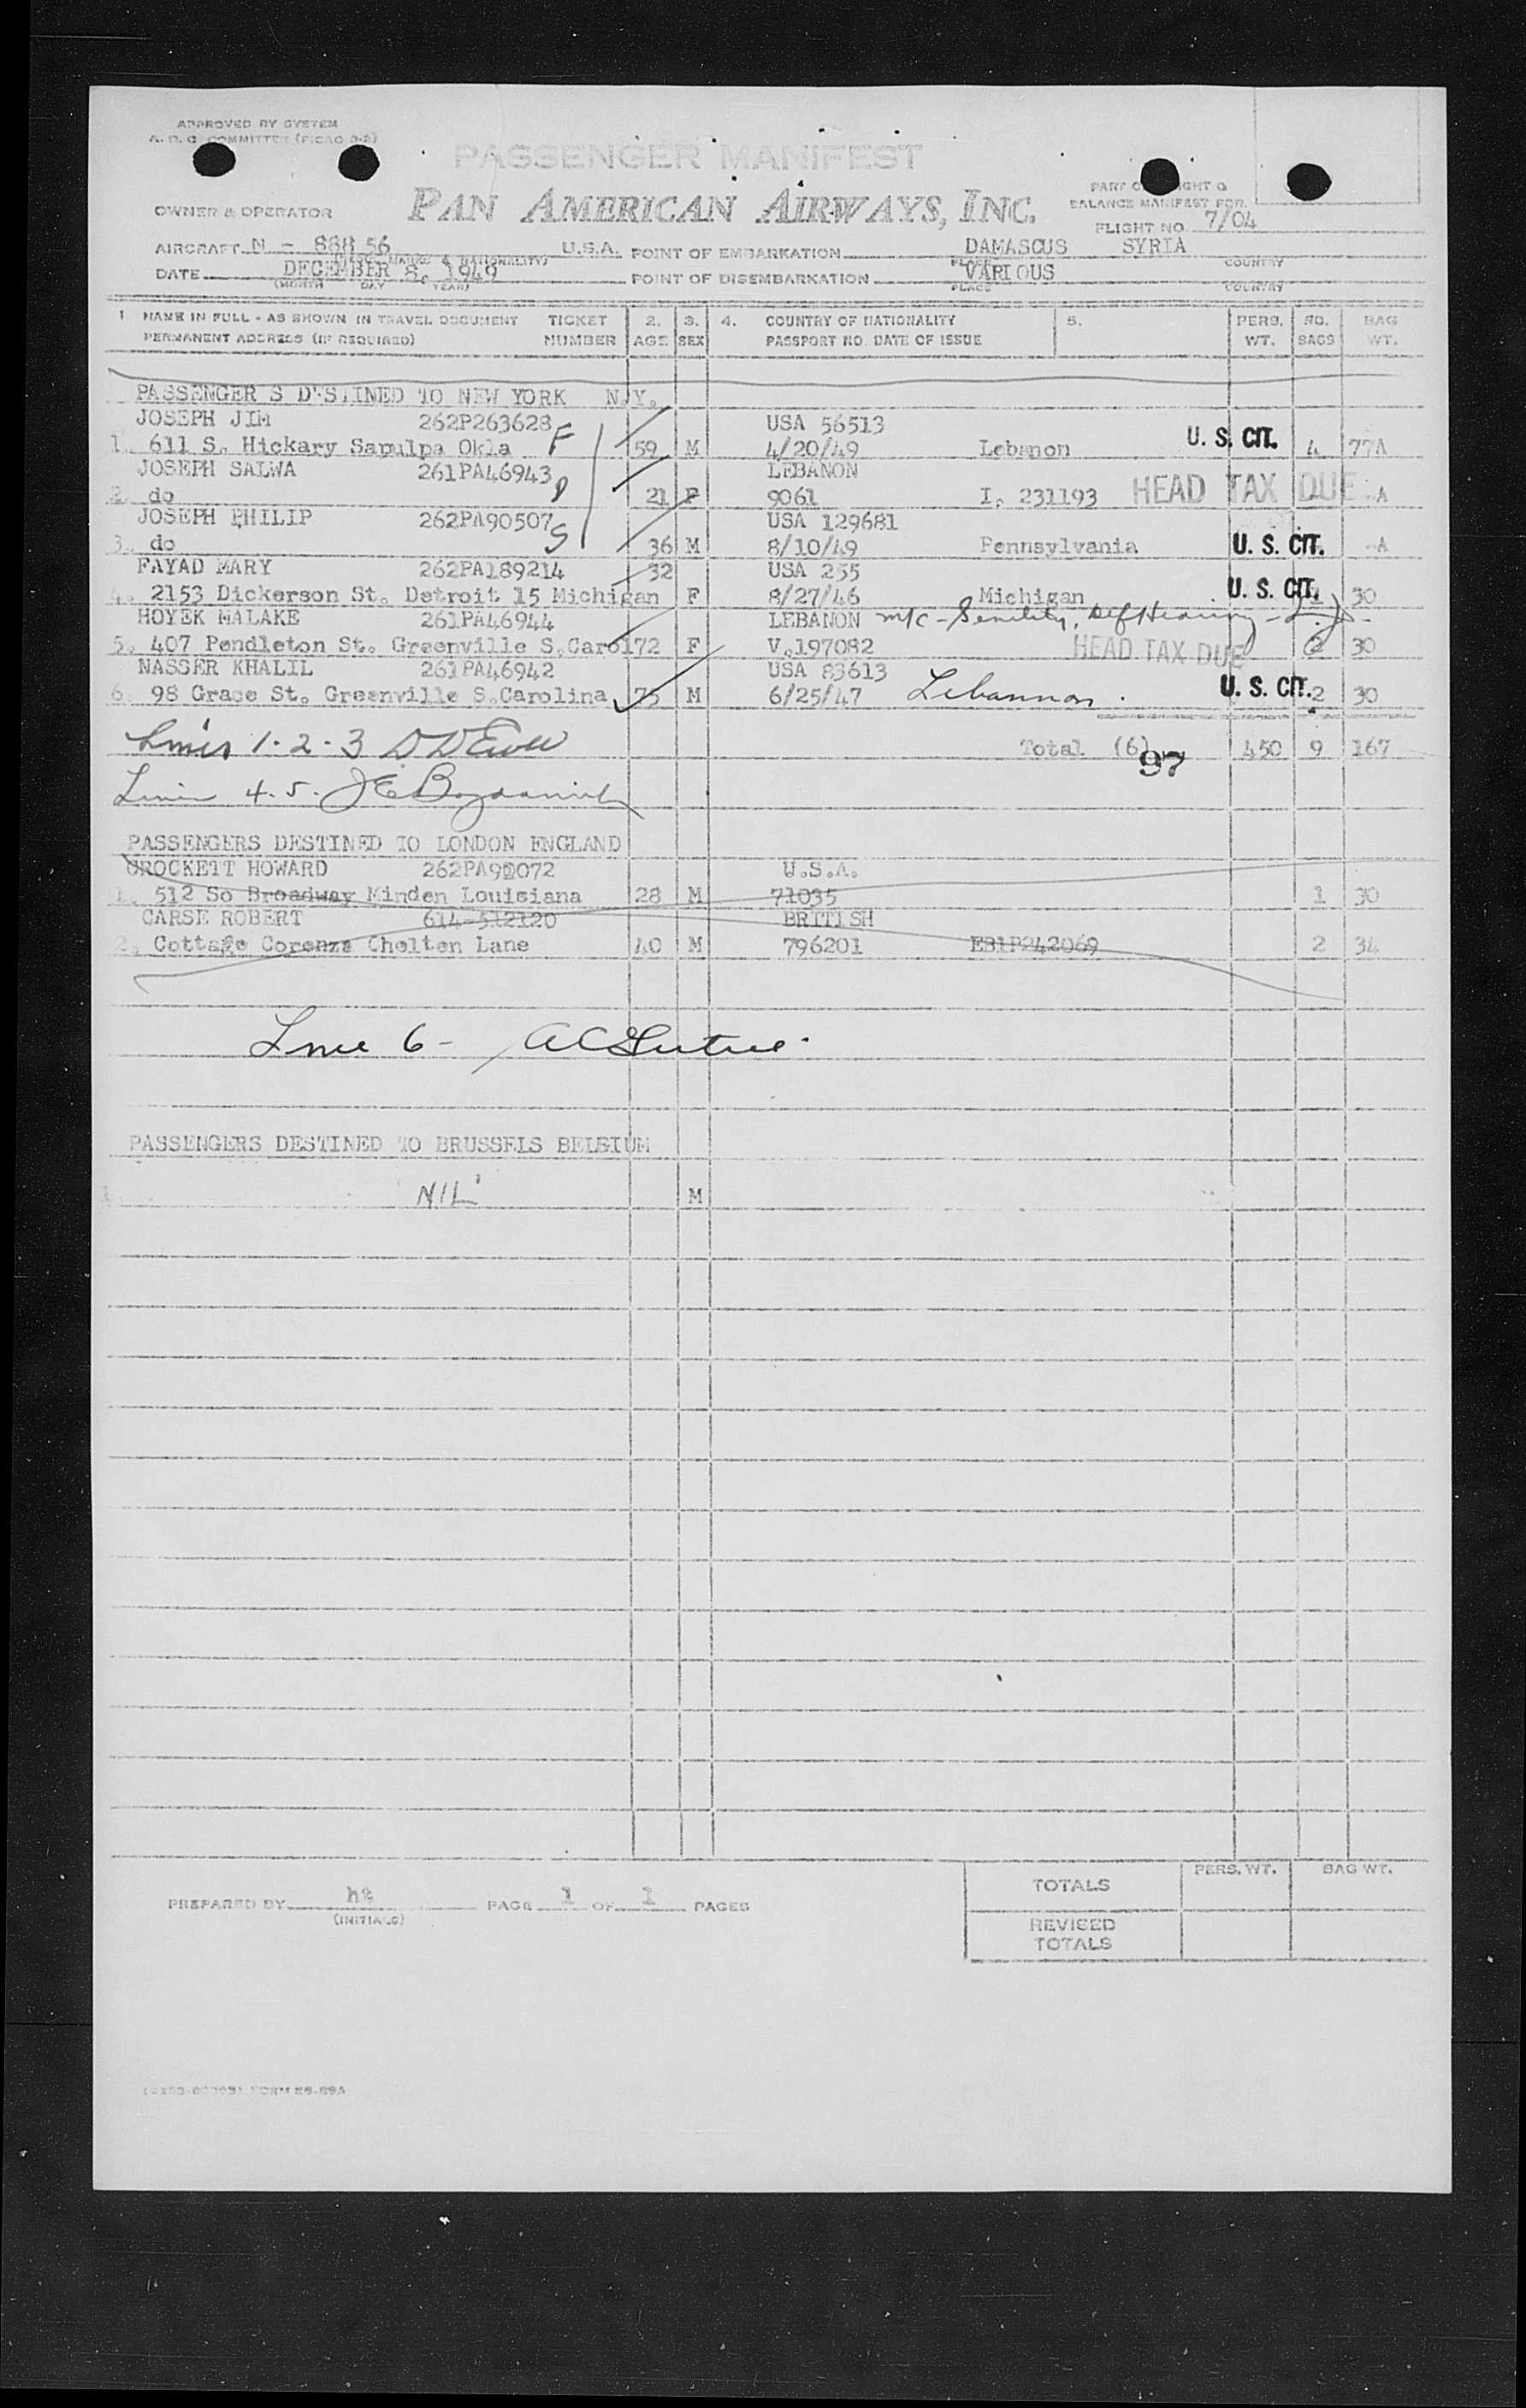 APPROVED BY SYSTEM
COMMITTEE
PASSENGER MANIFEST
PAN AMERICAN AIRWAYS, INC.
OWNER & OPERATOR
BALANCE MANIFEST FOR
FLIGHT NO. 7/04
AIRCRAFT N - 88856 U.S.A. POINT OF EMBARKATION DAMASCUS SYRIA
PLACE COUNTRY
DATE DECEMBER 8, 1949 POINT OF DISEMBARKATION VARIOUS
(MONTH DAY YEAR) PLACE COUNTRY
1 NAME IN FULL - AS SHOWN IN TRAVEL DOCUMENT TICKET 2. 3. 4. COUNTRY OF NATIONALITY 5. PERS. NO. BAG
PERMANENT ADDRESS (IF REQUIRED) NUMBER AGE SEX PASSPORT NO. DATE OF ISSUE WT. BAGS WT.
PASSENGER S DESTINED TO NEW YORK N.Y.
JOSEPH JIM 262P263628 F USA 56513
1. 611 S. Hickary Sapulpa Okla 59 M 4/20/49 Lebanon U. S. CIT. 4 77A
JOSEPH SALWA 261PA46943 LEBANON
2. do 21 F 9061 I. 231193 HEAD TAX DUE A
JOSEPH PHILIP 262PA90507 S USA 129681
3. do 36 M 8/10/49 Pennsylvania U. S. CIT. -A
FAYAD MARY 262PA189214 32 USA 255
4. 2153 Dickerson St. Detroit 15 Michigan F 8/27/46 Michigan U. S. CIT. 1 30
HOYEK MALAKE 261PA46944 LEBANON m/c - Senility, Def Hearing
5. 407 Pendleton St. Greenville S.Carol 72 F V.197082 HEAD TAX DUE 2 30
NASSER KHALIL 261PA46942 USA 83613
6. 98 Grace St. Greenville S.Carolina 75 M 6/25/47 Lebannon. U. S. CIT. 2 30
Lines 1-2-3 Total (6) 450 9 167
97
Lines 4-5-
PASSENGERS DESTINED TO LONDON ENGLAND
CROCKETT HOWARD 262PA90072 U.S.A.
1. 512 So Broadway Minden Louisiana 28 M 71035 1 30
CARSE ROBERT 614-512120 BRITISH
2. Cottage Corenze Chelten Lane 40 M 796201 EB1P242069 2 34
Line 6 -
PASSENGERS DESTINED TO BRUSSELS BELGIUM
NIL M
PERS. WT. BAG WT.
TOTALS
PREPARED BY ht PAGE 1 OF 1 PAGES
(INITIALS)
REVISED
TOTALS